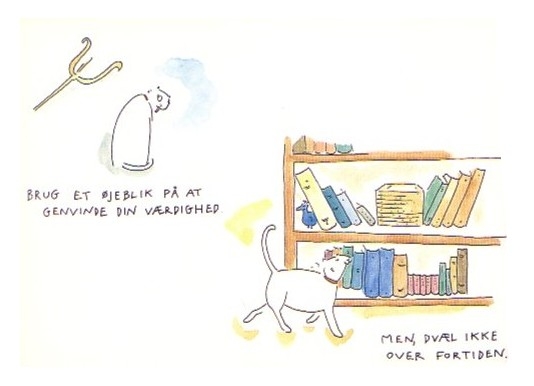 BRUG ET ØJEBLIK PÅ AT
GENVINDE DIN VÆRDIGHED.
MEN, DVÆL IKKE
OVER FORTIDEN.